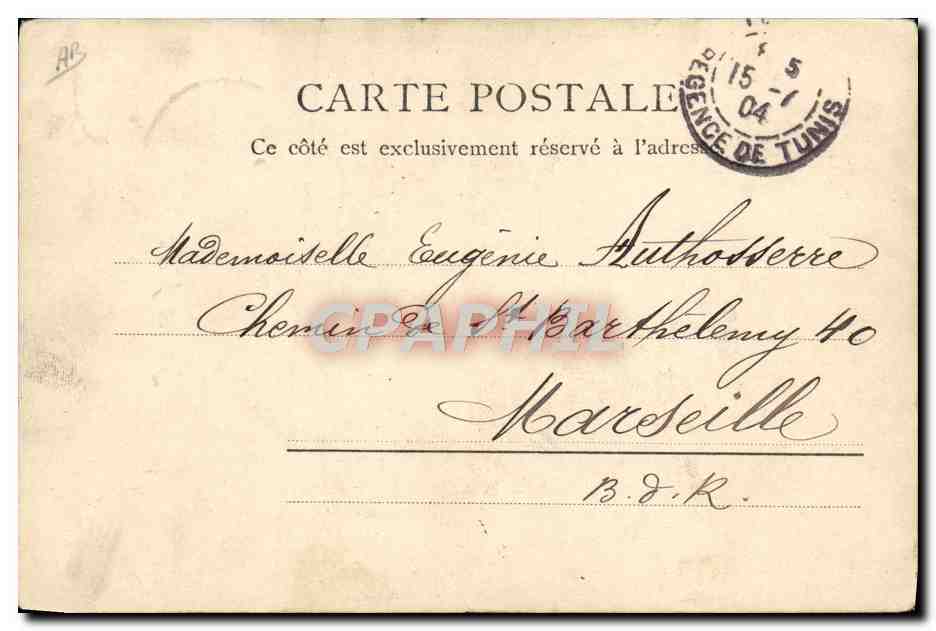 AB
15 5
-1
04
REGENCE DE TUNIS
CARTE POSTALE
Ce côté est exclusivement réservé à l'adresse
Mademoiselle Eugénie Authosserre
Chemin de St Barthélemy 40
Marseille
B. d. R.
CPAPHIL